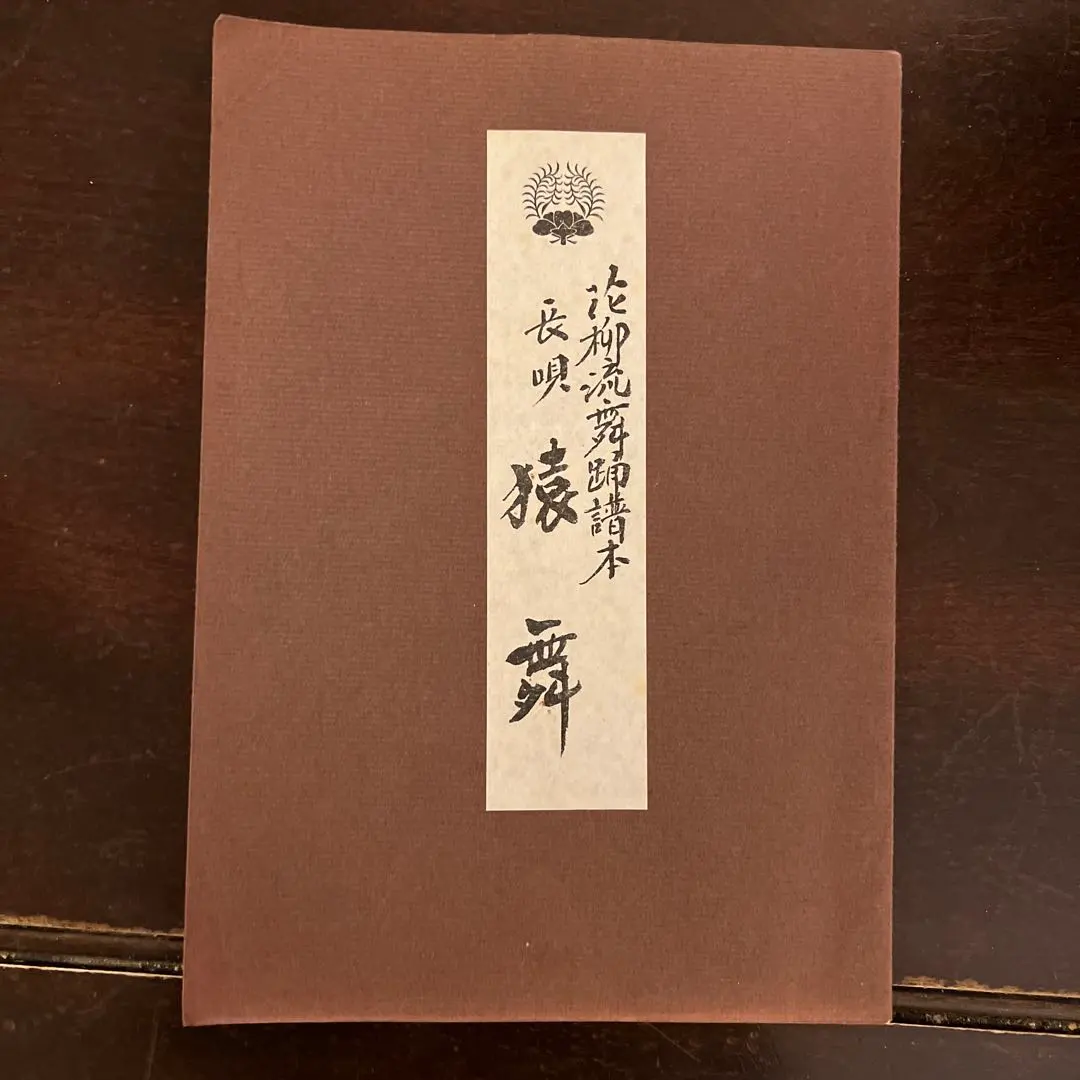 花柳流舞踊譜本
長唄 猿舞